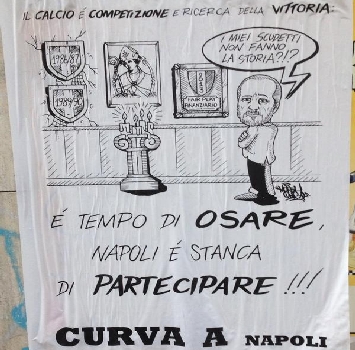 IL CALCIO É COMPETIZIONE E RICERCA DELLA VITTORIA:
I MIEI SCUDETTI
NON FANNO
LA STORIA?!?
1986/87
FAIR PLAY
FINANZIARIO
É TEMPO DI OSARE,
NAPOLI É STANCA
DI PARTECIPARE!!!
CURVA A NAPOLI